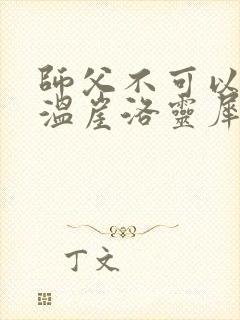 師父不可以
溫崖洛靈犀
丁文